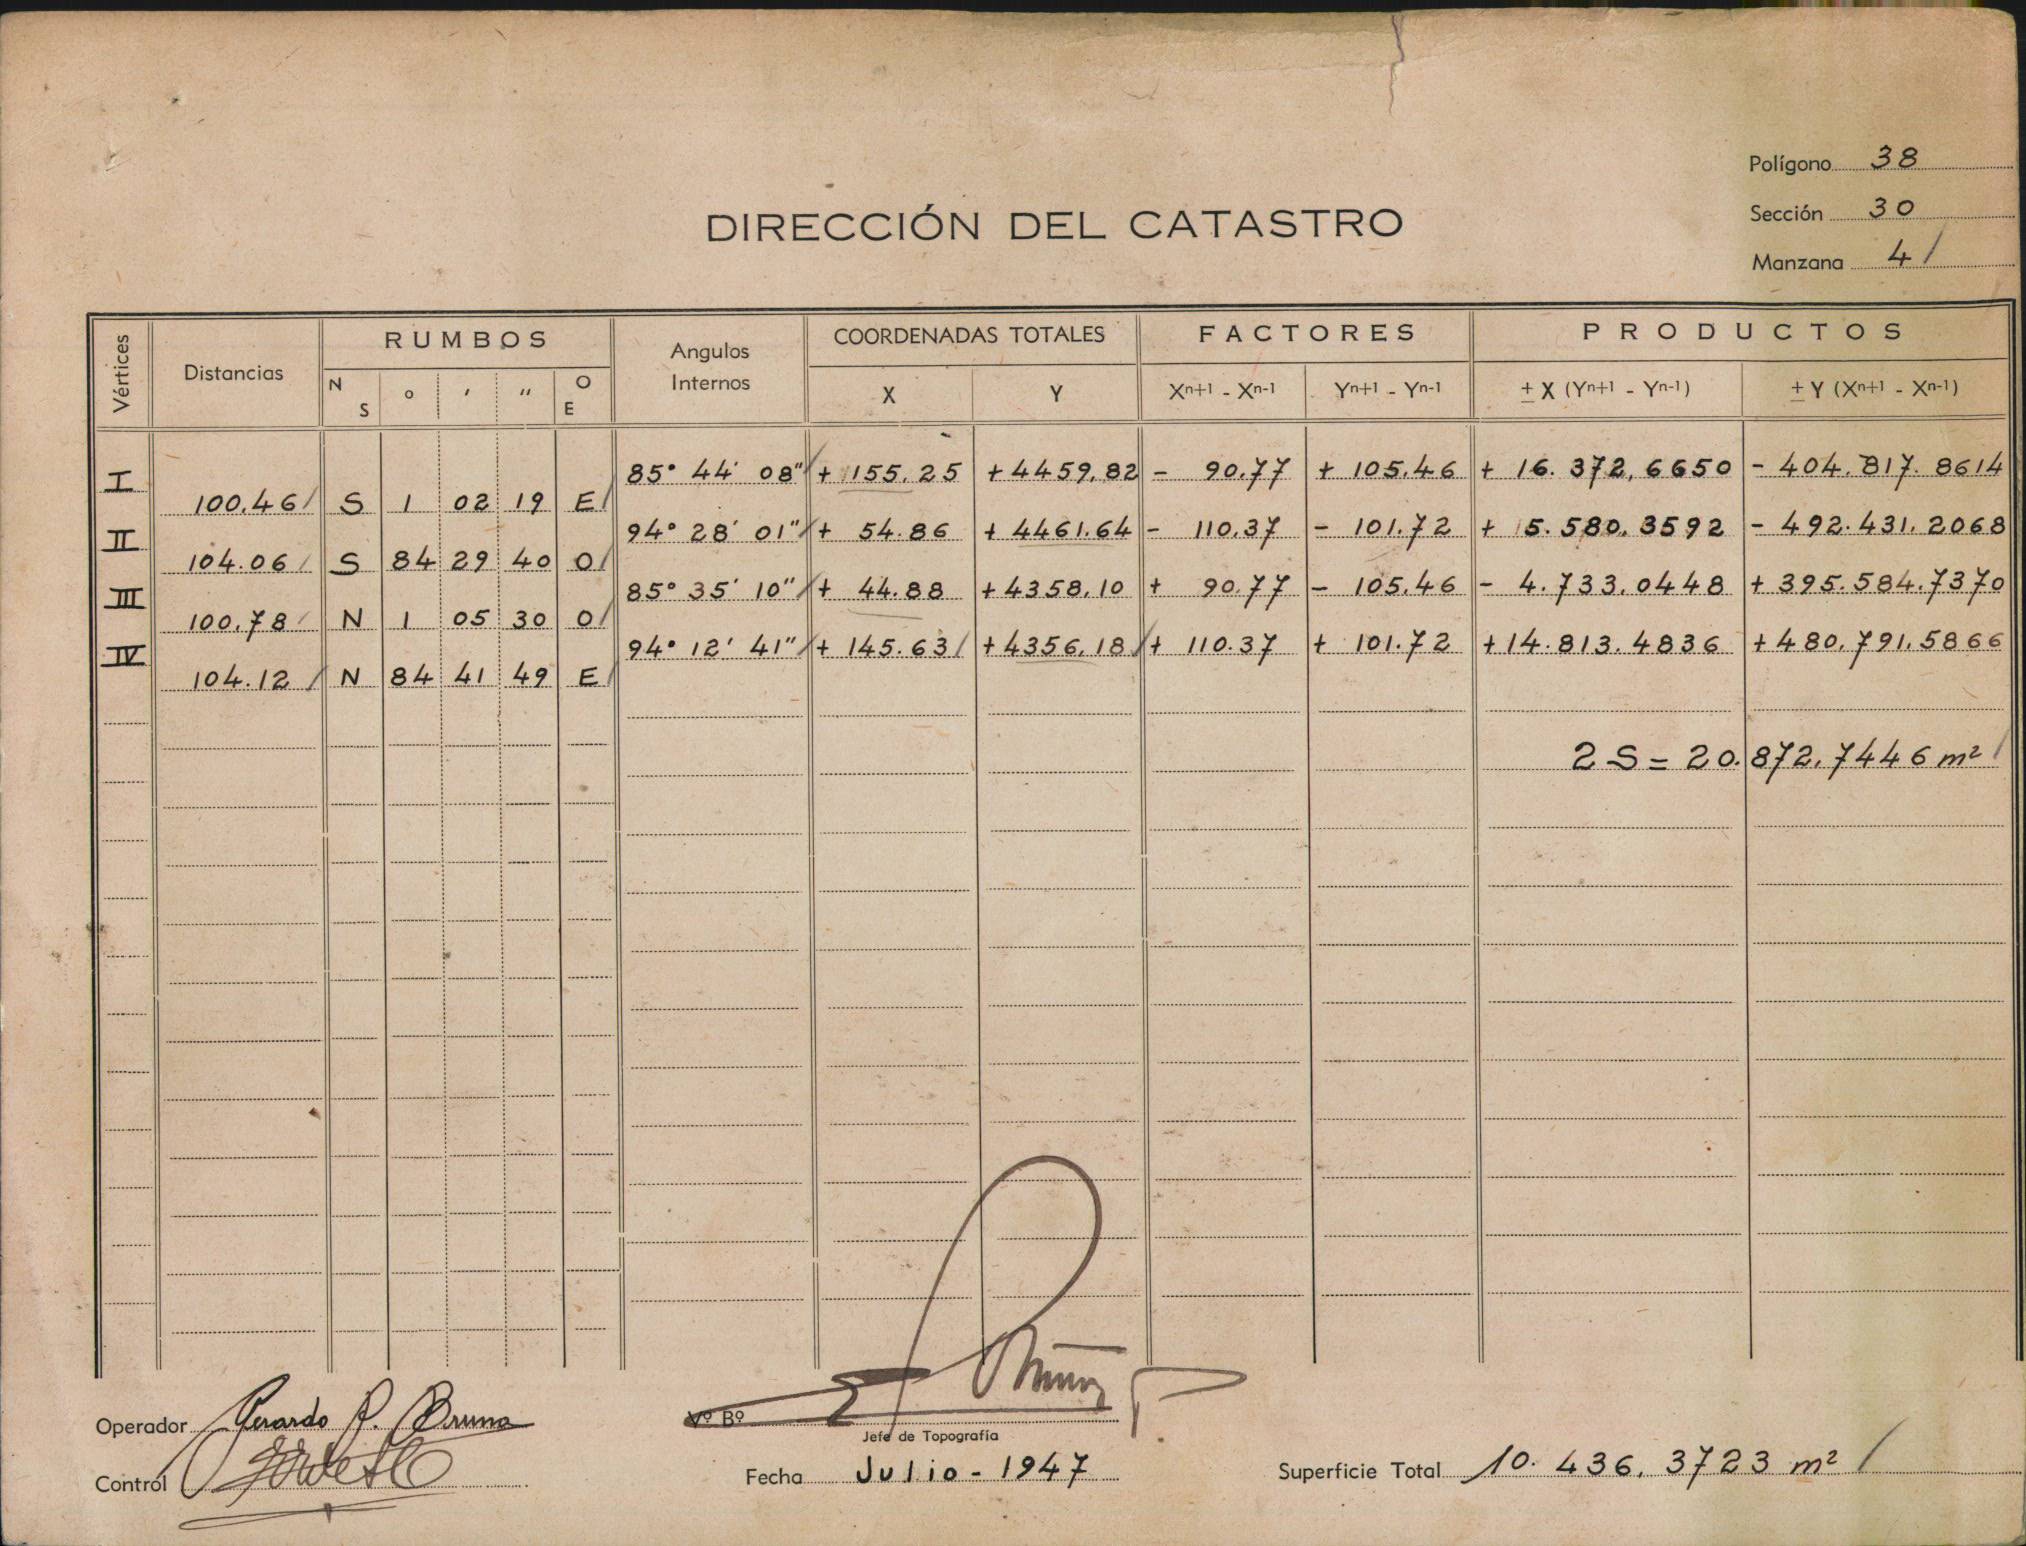 Polígono 38
Sección 30
DIRECCIÓN DEL CATASTRO
Manzana 4 /
Vértices Distancias RUMBOS Angulos Internos COORDENADAS TOTALES FACTORES PRODUCTOS
N S ° ′ ″ O E X Y Xn+1 - Xn-1 Yn+1 - Yn-1 ± X (Yn+1 - Yn-1) ± Y (Xn+1 - Xn-1)
I 85° 44′ 08″ + 155.25 + 4459.82 - 90.77 + 105.46 + 16.372,6650 - 404.817.8614
100.46 S 1 02 19 E
II 94° 28′ 01″ + 54.86 + 4461.64 - 110.37 - 101.72 + 5.580.3592 - 492.431.2068
104.06 S 84 29 40 O
III 85° 35′ 10″ + 44.88 + 4358.10 + 90.77 - 105.46 - 4.733.0448 + 395.584.7370
100.78 N 1 05 30 O
IV 94° 12′ 41″ + 145.63 + 4356.18 + 110.37 + 101.72 + 14.813.4836 + 480.791.5866
104.12 N 84 41 49 E
2S = 20.872,7446 m²
Operador Gerardo R. Bruna
Vº Bº
Jefe de Topografía
Control
Fecha Julio - 1947
Superficie Total 10.436,3723 m²